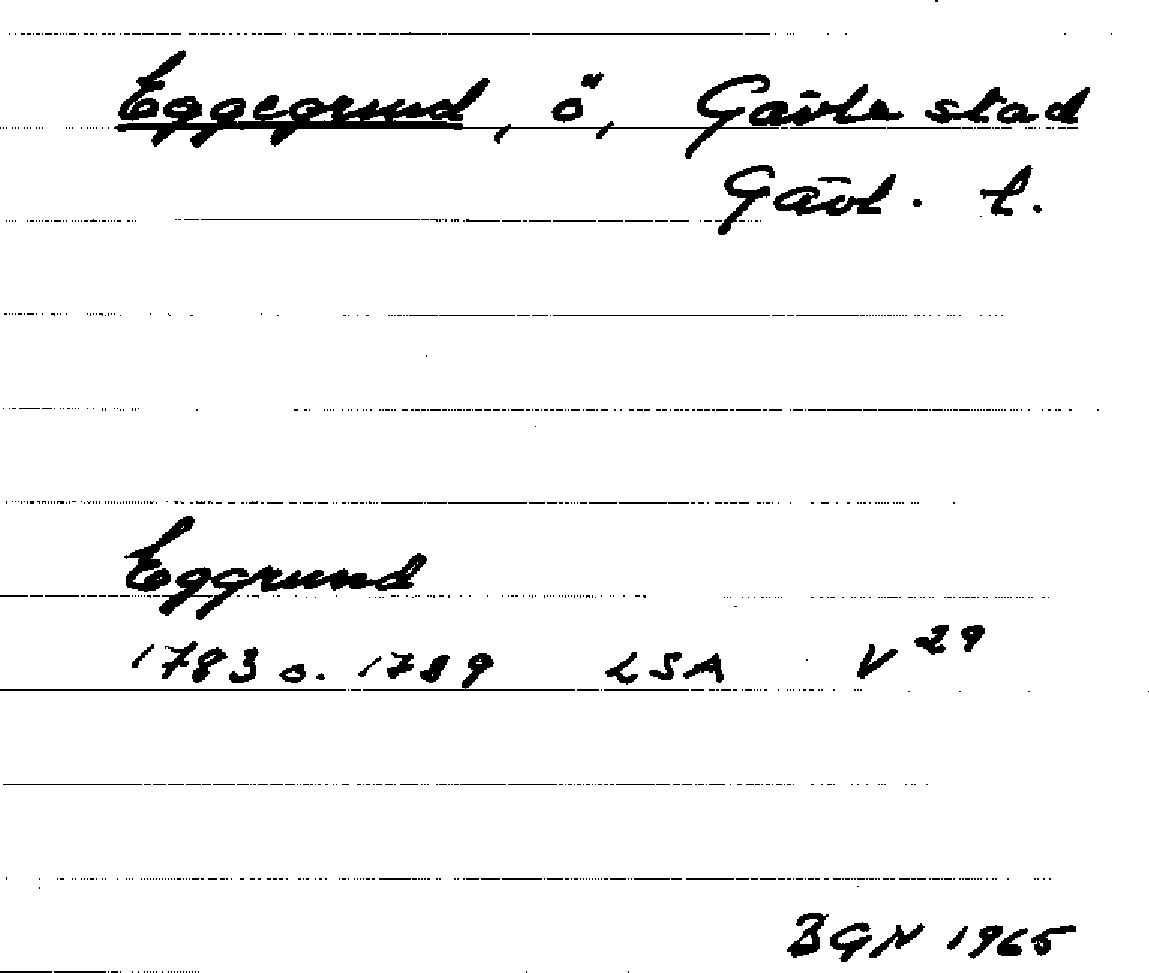 Eggegrund, ö, Gävle stad
Gävl. l.
Eggrund
1783 o. 1789 LSA V 29
BGN 1965